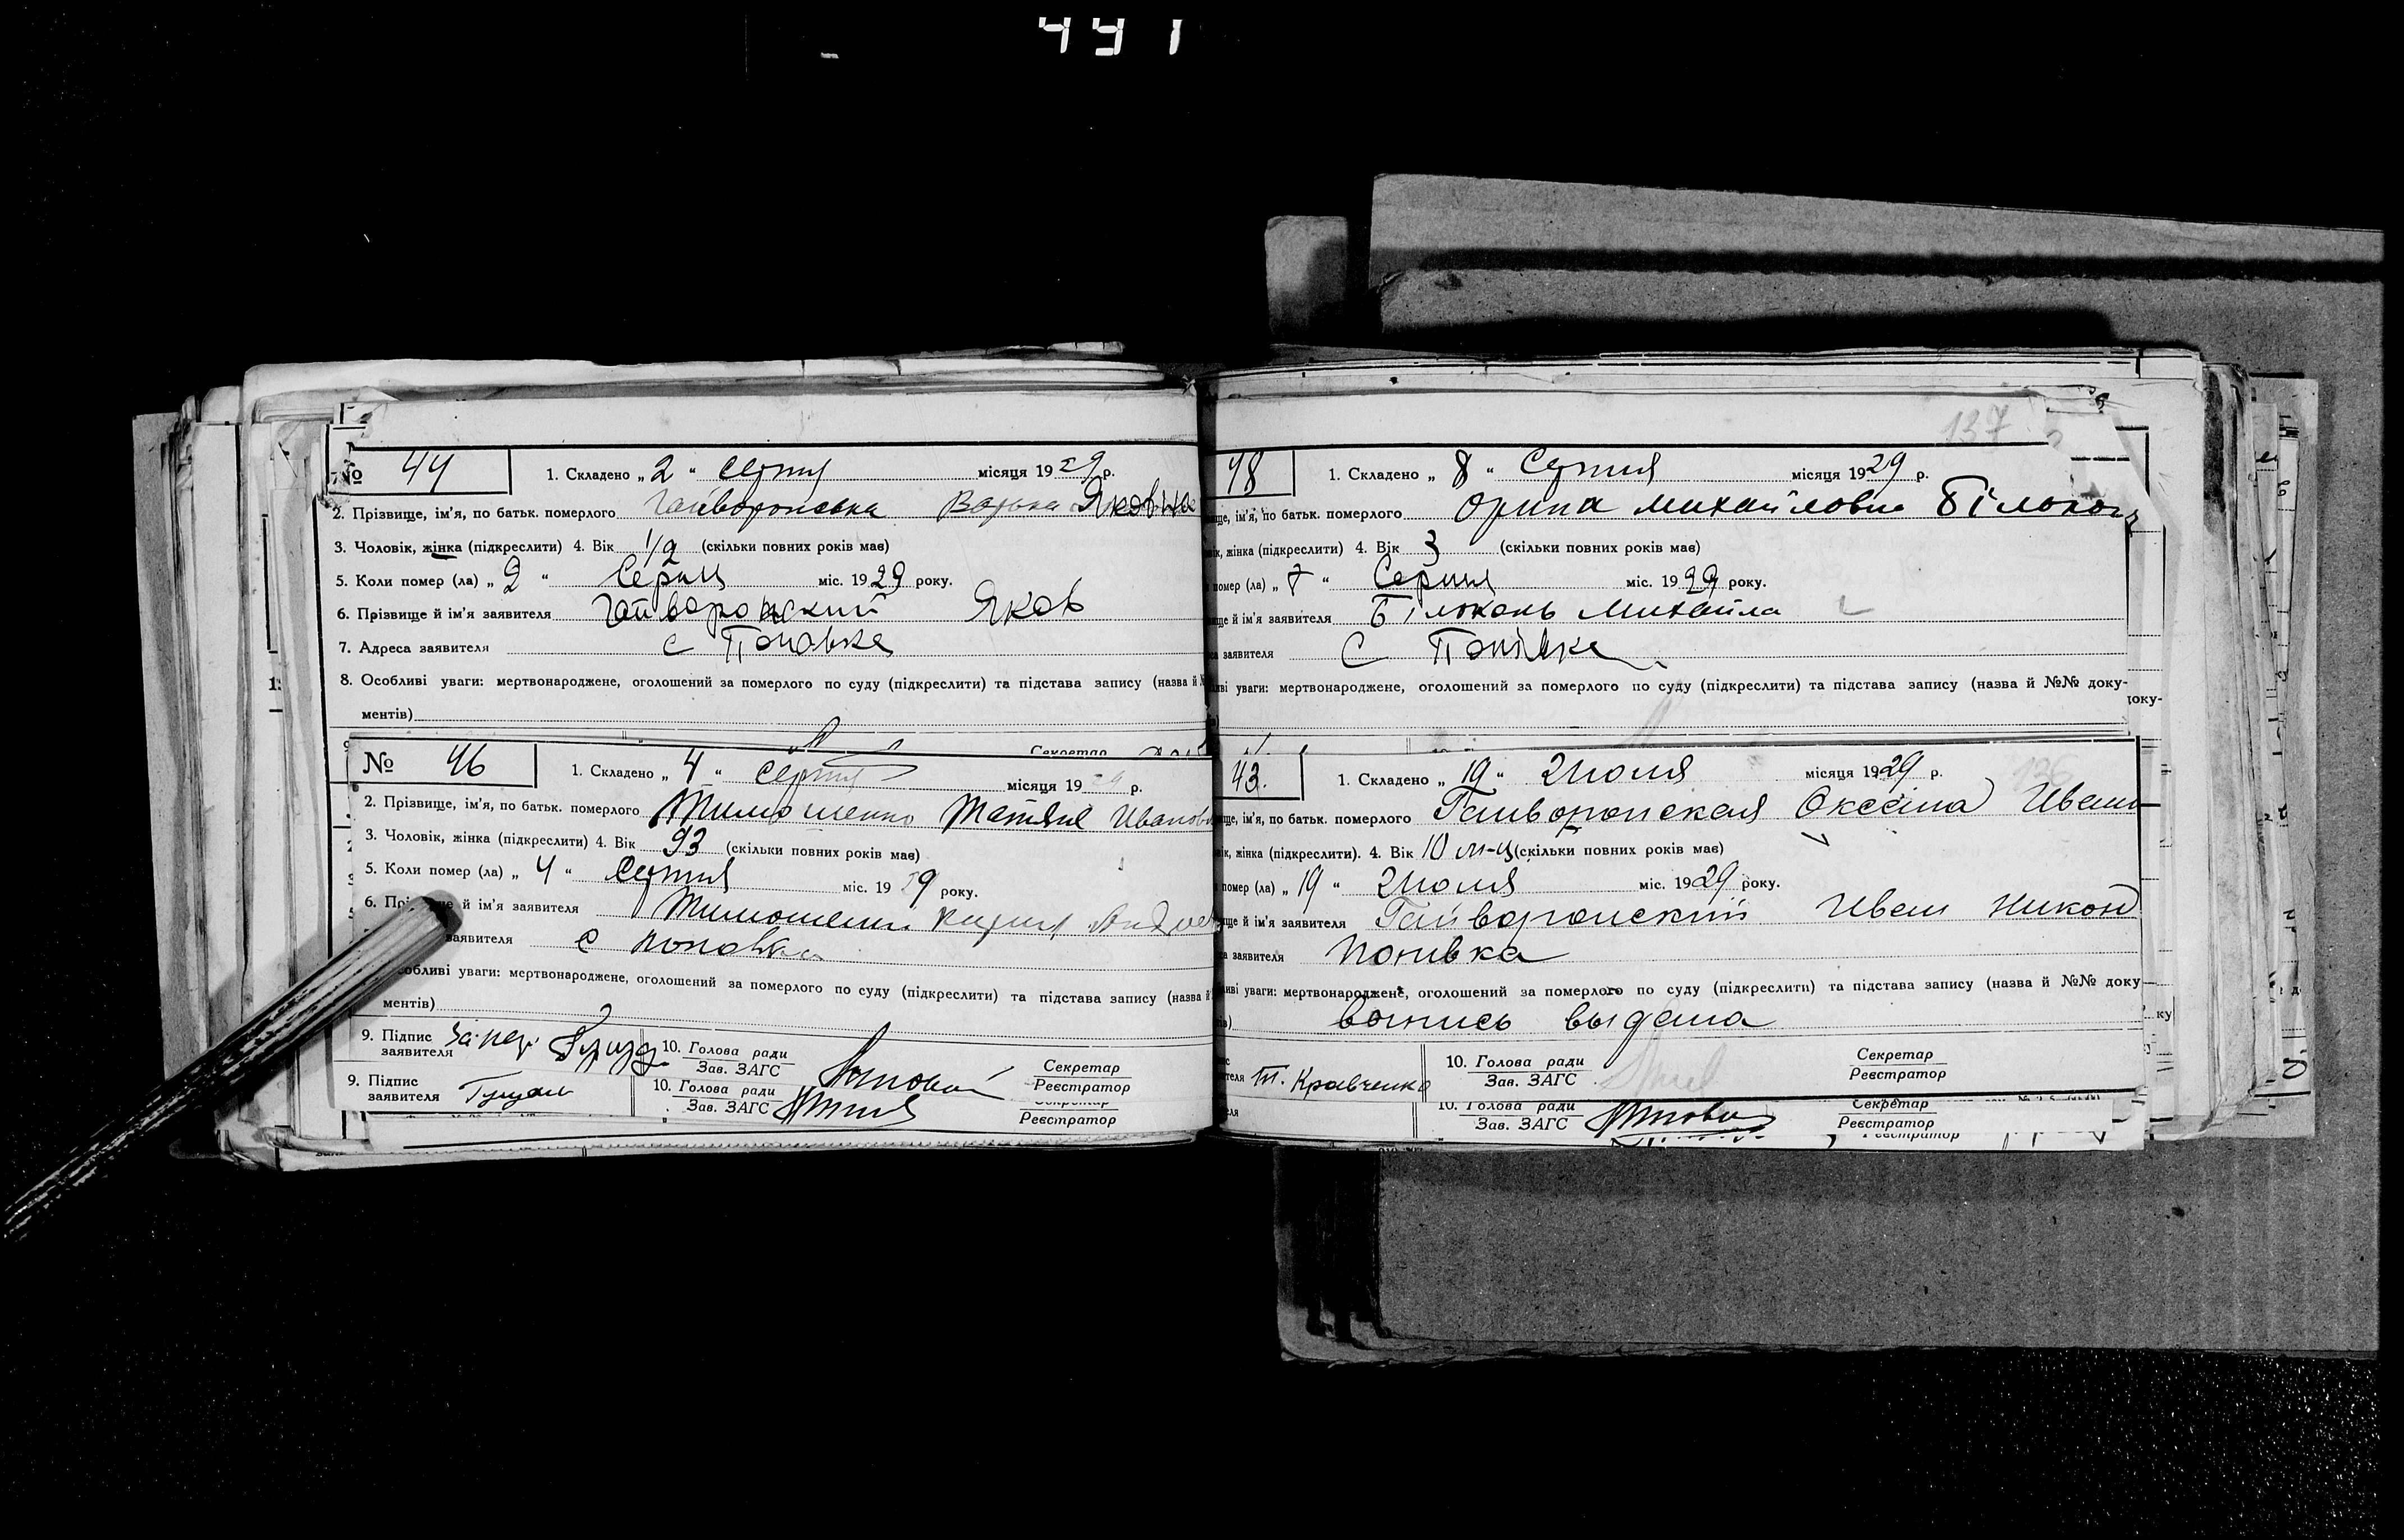 441
№ 44 1. Складено „ 2 “ Серпня місяця 1929 р.
2. Прізвище, ім'я, по батьк. померлого Гайворонська Варька Яковна
3. Чоловік, жінка (підкреслити) 4. Вік 1/2 (скільки повних років має)
5. Коли помер (ла) „ 2 “ Серпня міс. 1929 року.
6. Прізвище й ім'я заявителя Гайворонский Яков
7. Адреса заявителя с Поповка
8. Особливі уваги: мертвонароджене, оголошений за померлого по суду (підкреслити) та підстава запису (назва й №
ментів)
Секретар
№ 46 1. Складено „ 4 “ Серпня місяця 1929 р.
2. Прізвище, ім'я, по батьк. померлого Тимошенко Татяна Иванов
3. Чоловік, жінка (підкреслити) 4. Вік 93 (скільки повних років має)
5. Коли помер (ла) „ 4 “ Серпня міс. 1929 року.
6. Прі ще й ім'я заявителя Тимошенко
заявителя с Поповка
собливі уваги: мертвонароджене, оголошений за померлого по суду (підкреслити) та підстава запису (назва й
ментів)
9. Підпис заявителя 10. Голова ради Зав. ЗАГС Секретар Реєстратор
9. Підпис заявителя 10. Голова ради Зав. ЗАГС Реєстратор
137
48 1. Складено „ 8 “ Серпня місяця 1929 р.
ище, ім'я, по батьк. померлого Орина Михайловна Білоконь
вік, жінка (підкреслити) 4. Вік 3 (скільки повних років має)
помер (ла) „ 7 “ Серпня міс. 1929 року.
ище й ім'я заявителя Білоконь Михайла
са заявителя С Попівка
ливі уваги: мертвонароджене, оголошений за померлого по суду (підкреслити) та підстава запису (назва й №№ доку-
доку-
43. 1. Складено „ 19 “ Июля місяця 1929 р.
ище, ім'я, по батьк. померлого Гайворонская Оксана Иван
вік, жінка (підкреслити). 4. Вік 10 м-ц (скільки повних років має)
помер (ла) „ 19 “ Июля міс. 1929 року.
ище й ім'я заявителя Гайворонский Иван Никон
са заявителя Попивка
ливі уваги: мертвонароджене, оголошений за померлого по суду (підкреслити) та підстава запису (назва й №№ доку
ів) выдана
ку
теля Т. Кравченко 10. Голова ради Зав. ЗАГС Секретар Реєстратор
10. Голова ради Зав. ЗАГС Секретар Реєстратор